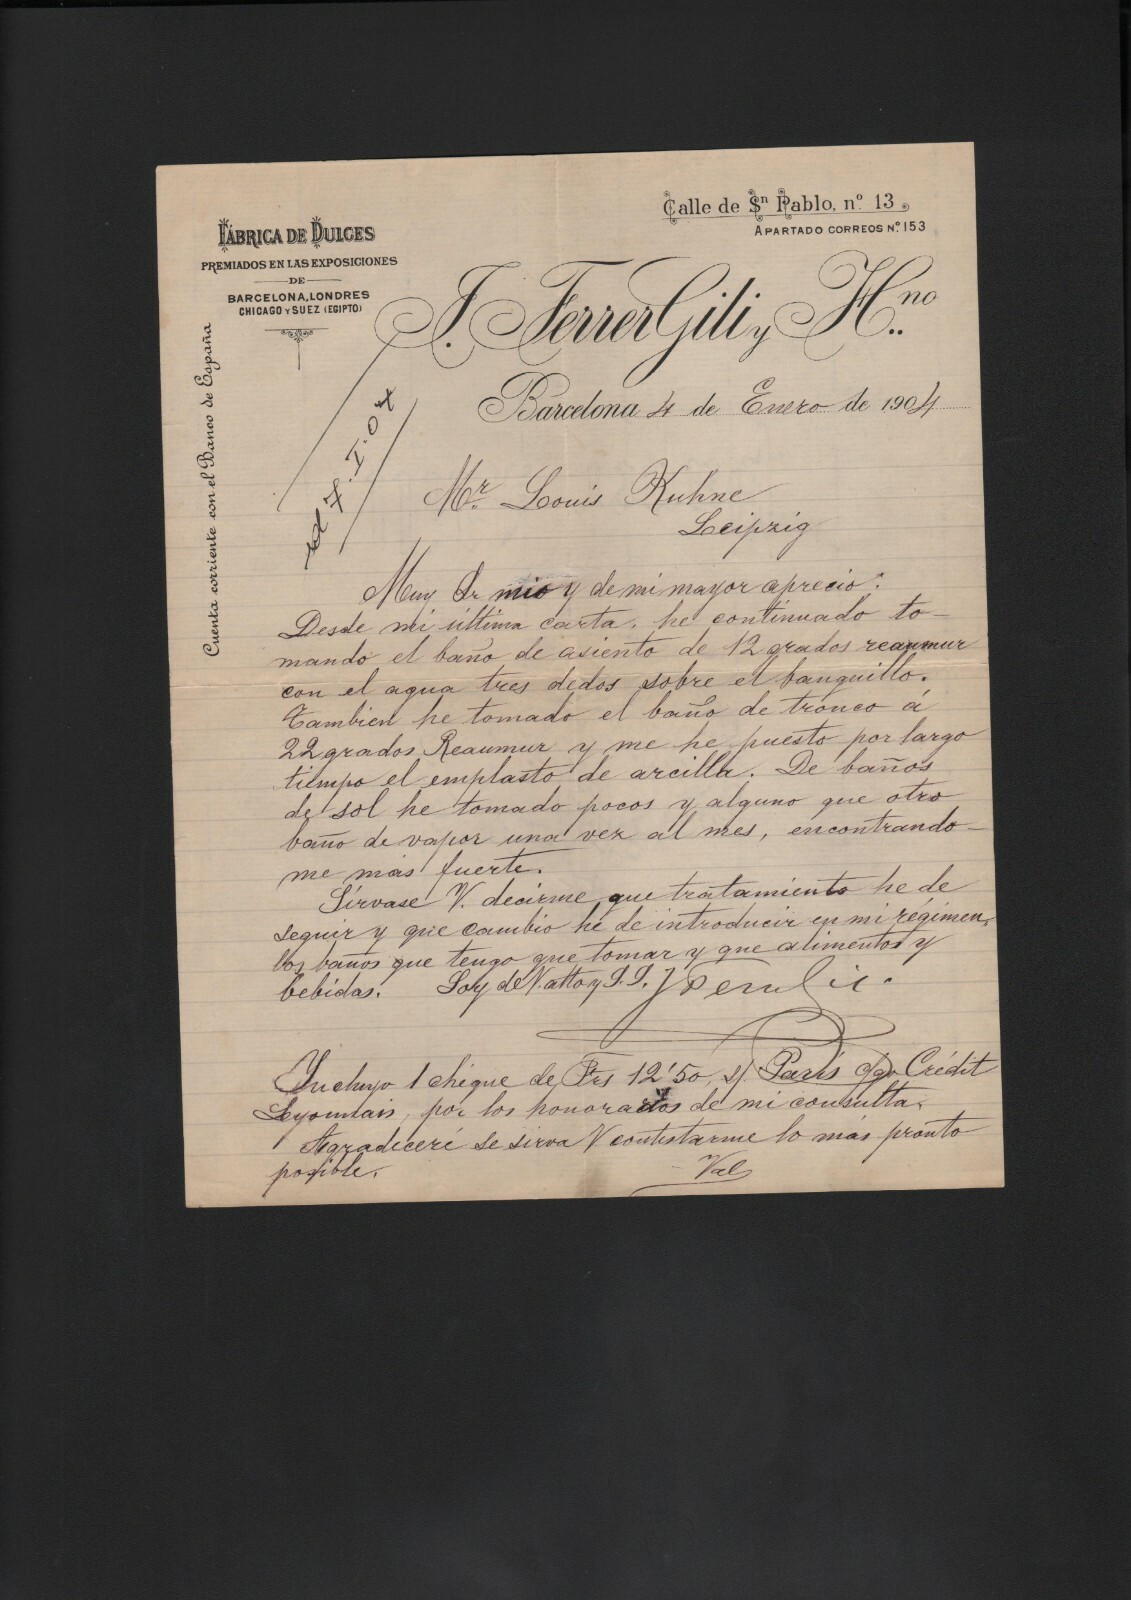 Calle de Sn Pablo, nº 13
APARTADO CORREOS Nº 153
FÁBRICA DE DULCES
PREMIADOS EN LAS EXPOSICIONES
DE
BARCELONA, LONDRES
CHICAGO Y SUEZ (EGIPTO)
J. Ferrer Gili y Hno
Cuenta corriente con el Banco de España
Barcelona 4 de Enero de 1904
Mr. Louis Kuhne
Leipzig
Muy Sr mio y de mi mayor aprecio:
Desde mi última carta, he continuado to-
mando el baño de asiento de 12 grados reaumur
con el agua tres dedos sobre el banquillo.
Tambien he tomado el baño de tronco á
22 grados Reaumur y me he puesto por largo
tiempo el emplasto de arcilla. De baños
de sol he tomado pocos y alguno que otro
baño de vapor una vez al mes, encontrando-
me más fuerte.
Sírvase V. decirme que tratamiento he de
seguir y que cambio he de introducir en mi régimen,
los baños que tengo que tomar y que alimentos y
bebidas. Soy de V. atto y S.S.
Incluyo 1 chéque de Frs 12'50, s/ Paris c/go Crédit
Lyonnais, por los honorarios de mi consulta.
Agradeceré se sirva V contestarme lo más pronto
posible.
Val